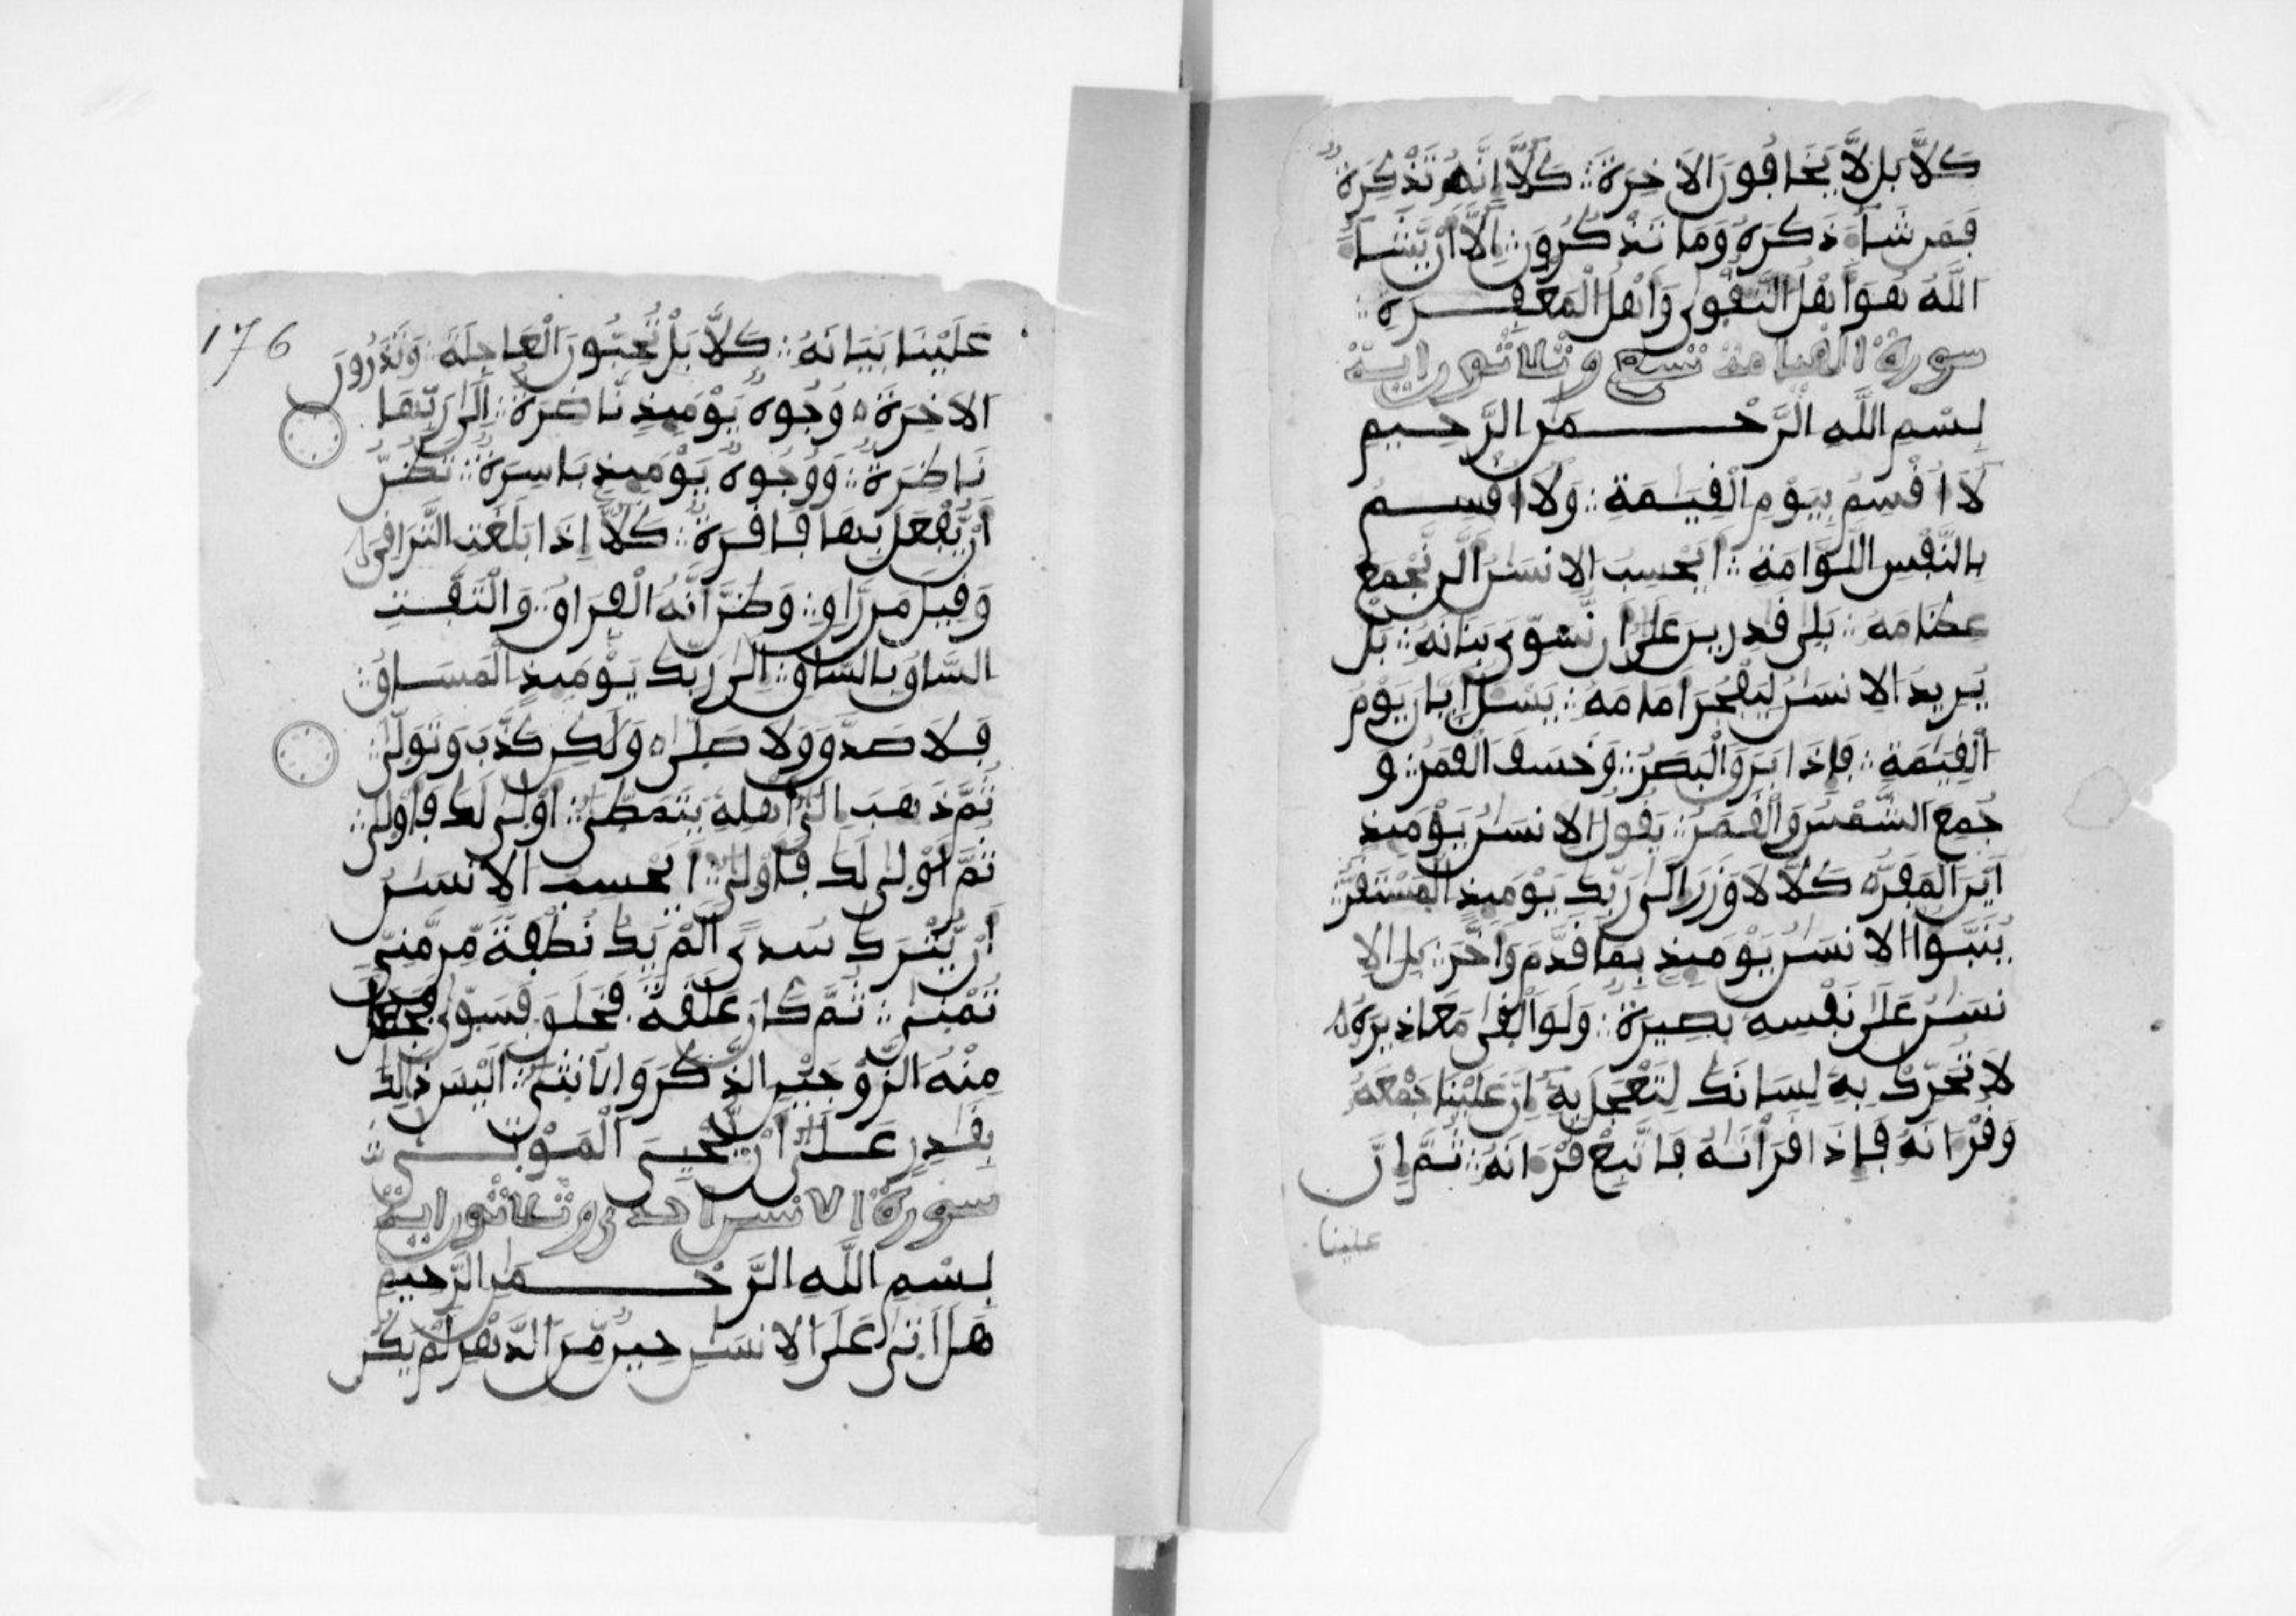 كَلَّا بَل لَّا يَخَافُونَ الَاخِرَةَ كَلَّا إِنَّهُ تَذْكِرَةٌ
فَمَن شَاءَ ذَكَرَهُ وَمَا تَذْكُرُونَ إِلَّا أَنْ يَّشَاءَ
اللَّهُ هُوَ أَهْلُ التَّقْوَى وَأَهْلُ الْمَغْفِرَةِ
سورة القيامة تسع وثلاثون اية
بِسْمِ اللَّهِ الرَّحْمَنِ الرَّحِيمِ
لَا أُقْسِمُ بِيَوْمِ الْقِيَمَةِ وَلَا أُقْسِمُ
بِالنَّفْسِ اللَّوَّامَةِ أَيَحْسِبُ الِانسَنُ أَلَّن نَّجْمَعَ
عِظَامَهُ بَلَى قَدِرِينَ عَلَى أَن نُّسَوِّيَ بَنَانَهُ بَلْ
يُرِيدُ الِانسَنُ لِيَفْجُرَ أَمَامَهُ يَسْئَلُ أَيَّانَ يَوْمُ
الْقِيَمَةِ فَإِذَا بَرَقَ الْبَصَرُ وَخَسَفَ الْقَمَرُ وَ
جُمِعَ الشَّمْسُ وَالْقَمَرُ يَقُولُ الِانسَنُ يَوْمَئِذٍ
أَيْنَ الْمَفَرُّ كَلَّا لَا وَزَرَ إِلَى رَبِّكَ يَوْمَئِذٍ الْمُسْتَقَرُّ
يُنَبَّؤُا الِانسَنُ يَوْمَئِذٍ بِمَا قَدَّمَ وَأَخَّرَ بَلِ الِا
نسَنُ عَلَى نَفْسِهِ بَصِيرَةٌ وَلَوَ الْقَى مَعَاذِيرَهُ
لَا تُحَرِّكْ بِهِ لِسَانَكَ لِتَعْجَلَ بِهِ إِنَّ عَلَيْنَا جَمْعَهُ
وَقُرْءَانَهُ فَإِذَا قَرَأْنَهُ فَاتَّبِعْ قُرْءَانَهُ ثُمَّ إِنَّ
علينا
176
عَلَيْنَا بَيَانَهُ كَلَّا بَلْ تُحِبُّونَ الْعَاجِلَةَ وَتَذَرُونَ
الَاخِرَةَ وُجُوهٌ يَوْمَئِذٍ نَّاضِرَةٌ إِلَى رَبِّهَا
نَاظِرَةٌ وَوُجُوهٌ يَوْمَئِذٍ بَاسِرَةٌ تَظُنُّ
أَنْ يُّفْعَلَ بِهَا فَاقِرَةٌ كَلَّا إِذَا بَلَغَتِ التَّرَاقِيَ
وَقِيلَ مَن رَّاقٍ وَظَنَّ أَنَّهُ الْفِرَاقُ وَالْتَفَّتِ
السَّاقُ بِالسَّاقِ إِلَى رَبِّكَ يَوْمَئِذٍ الْمَسَاقُ
فَلَا صَدَّقَ وَلَا صَلَّى وَلَكِن كَذَّبَ وَتَوَلَّى
ثُمَّ ذَهَبَ إِلَى أَهْلِهِ يَتَمَطَّى أَوْلَى لَكَ فَأَوْلَى
ثُمَّ أَوْلَى لَكَ فَأَوْلَى أَيَحْسِبُ الِانسَنُ
أَنْ يُّتْرَكَ سُدًى أَلَمْ يَكُ نُطْفَةً مِّن مَّنِيٍّ
تُمْنَى ثُمَّ كَانَ عَلَقَةً فَخَلَقَ فَسَوَّى فَجَعَلَ
مِنْهُ الزَّوْجَيْنِ الذَّكَرَ وَالُانثَى أَلَيْسَ ذَلِكَ
بِقَدِرٍ عَلَى أَنْ يُّحْيِيَ الْمَوْتَى
سورة الانسن احدى وثلاثون اية
بِسْمِ اللَّهِ الرَّحْمَنِ الرَّحِيمِ
هَلَ اَتَى عَلَى الِانسَنِ حِينٌ مِّنَ الدَّهْرِ لَمْ يَكُن